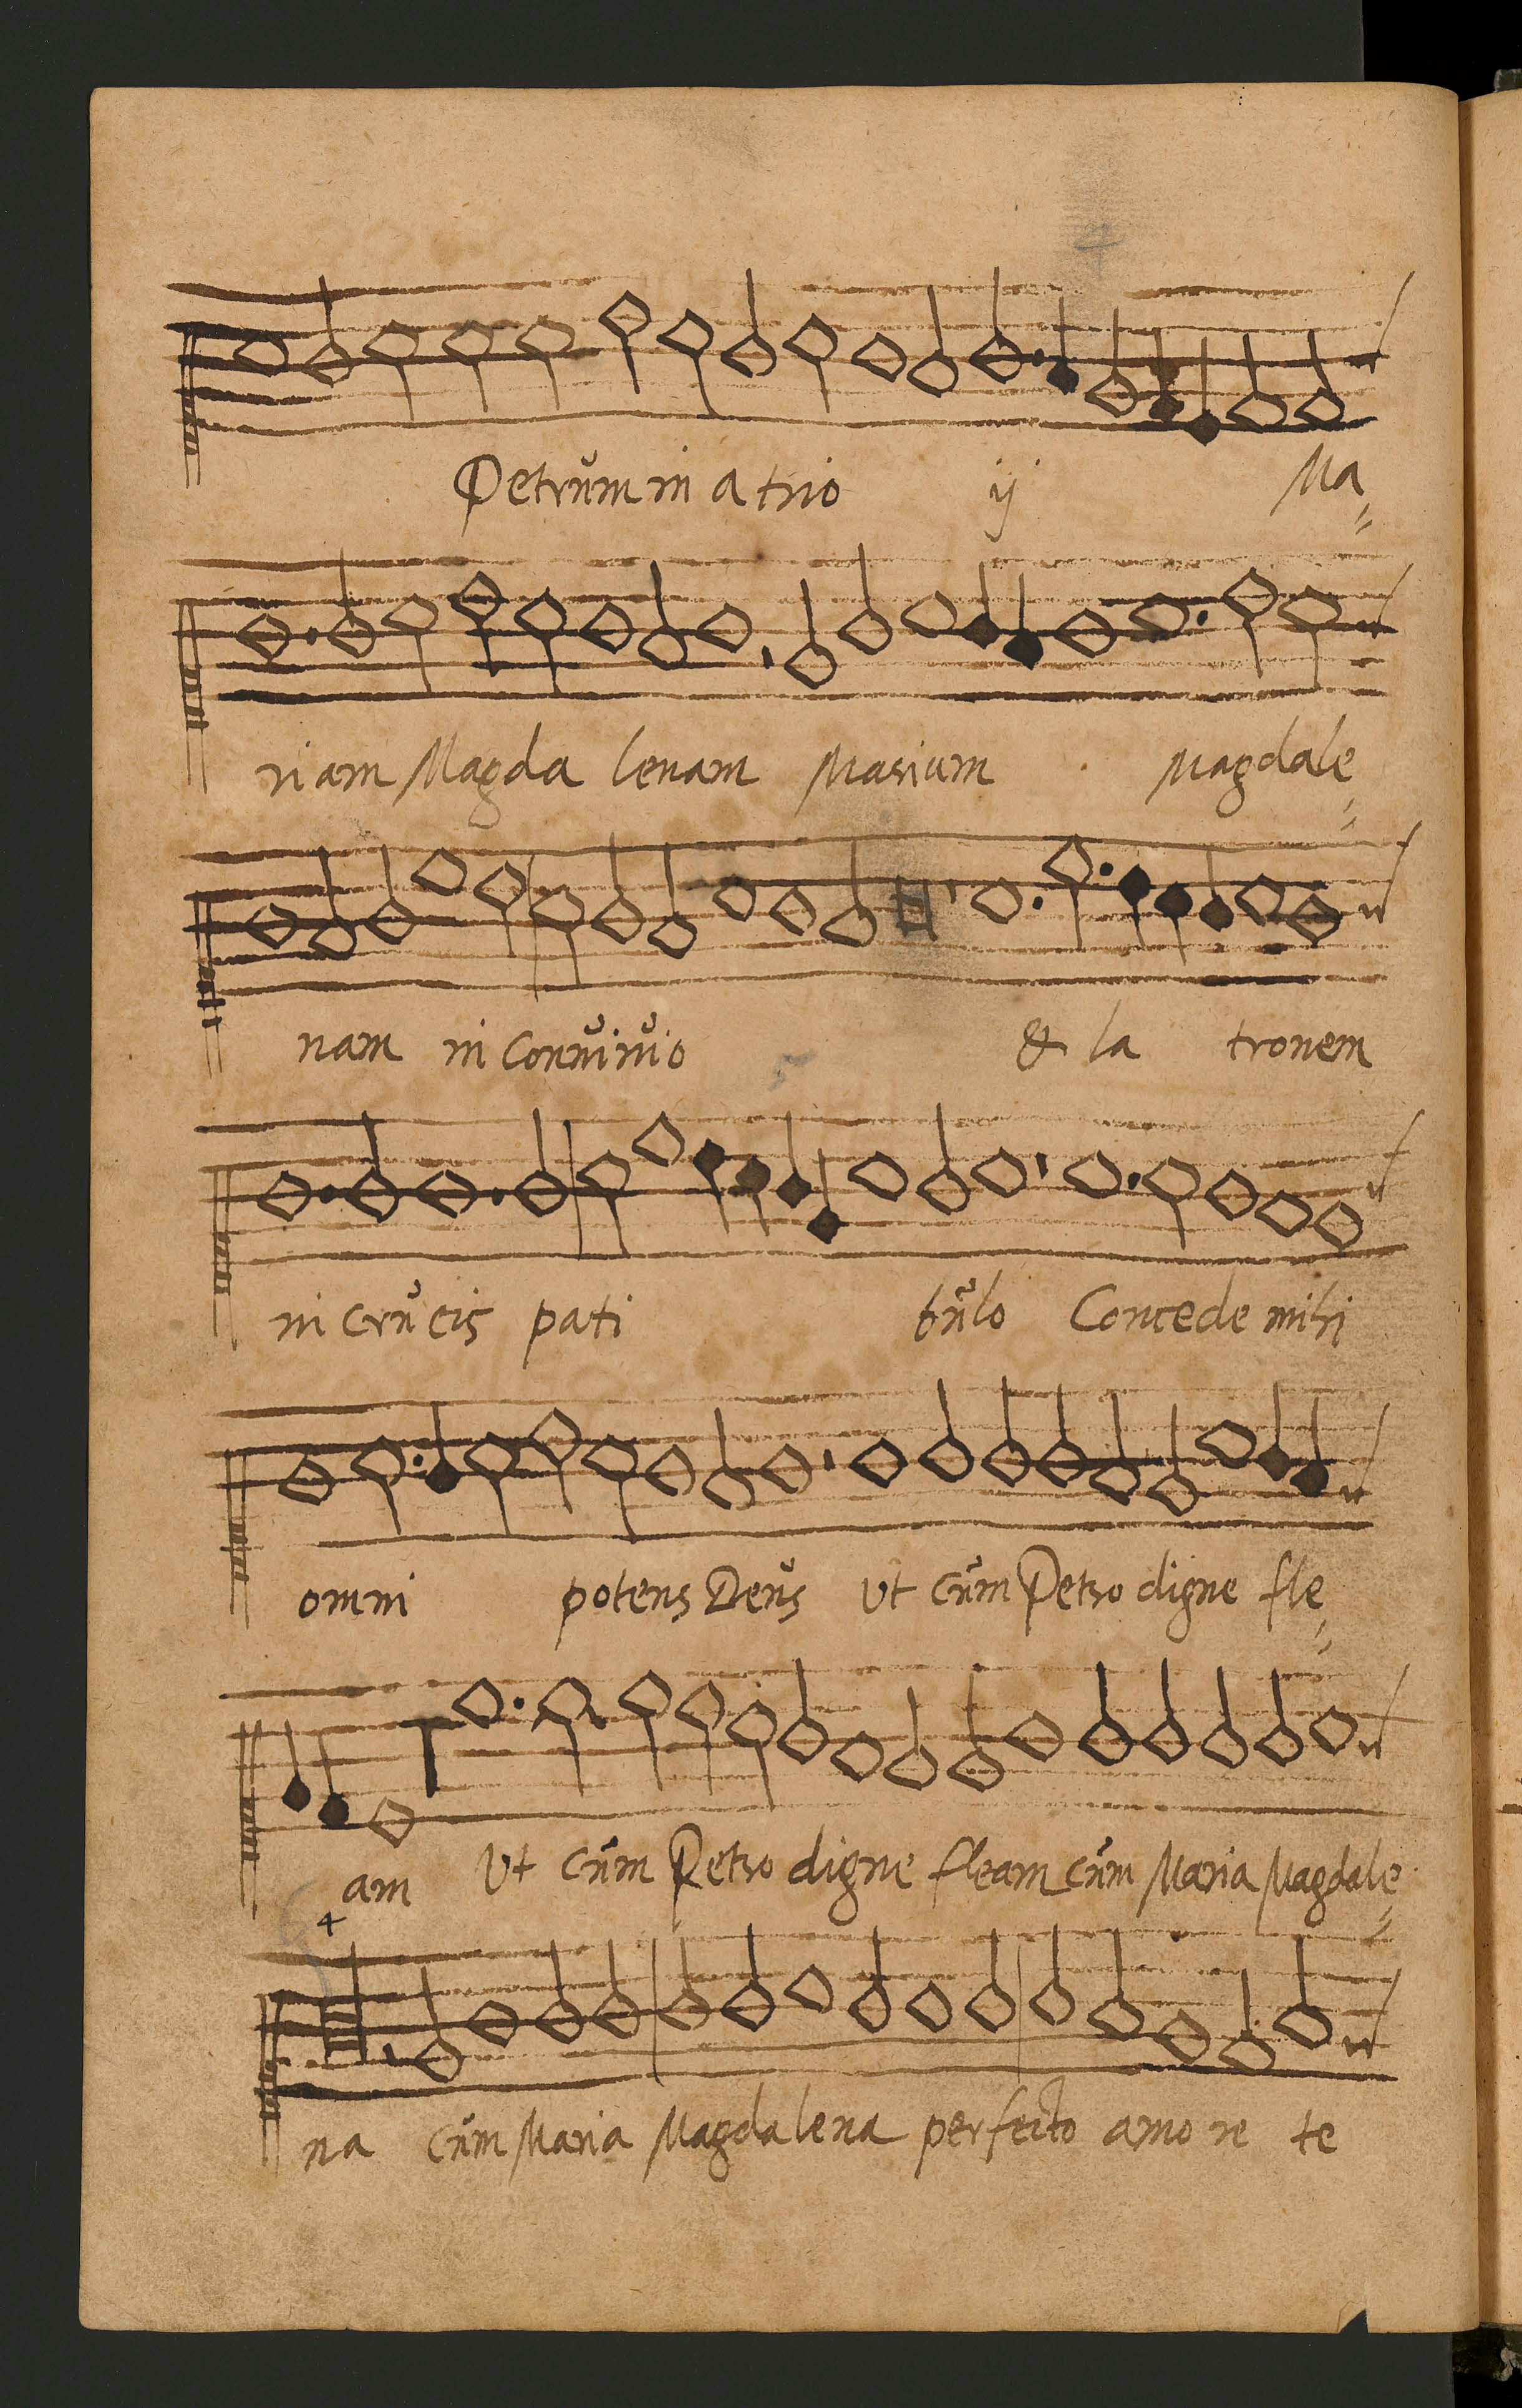 Petrum in atrio ij Ma=
riam Magda lenam Mariam Magdale=
nam in Conuiuio & la tronem
in Crucis pati bulo Concede mihi
omni potens Deus Ut cum Petro digne fle=
am Ut cum Petro digne fleam cum Maria Magdale=
na cum Maria Magdalena perfecto amo re te